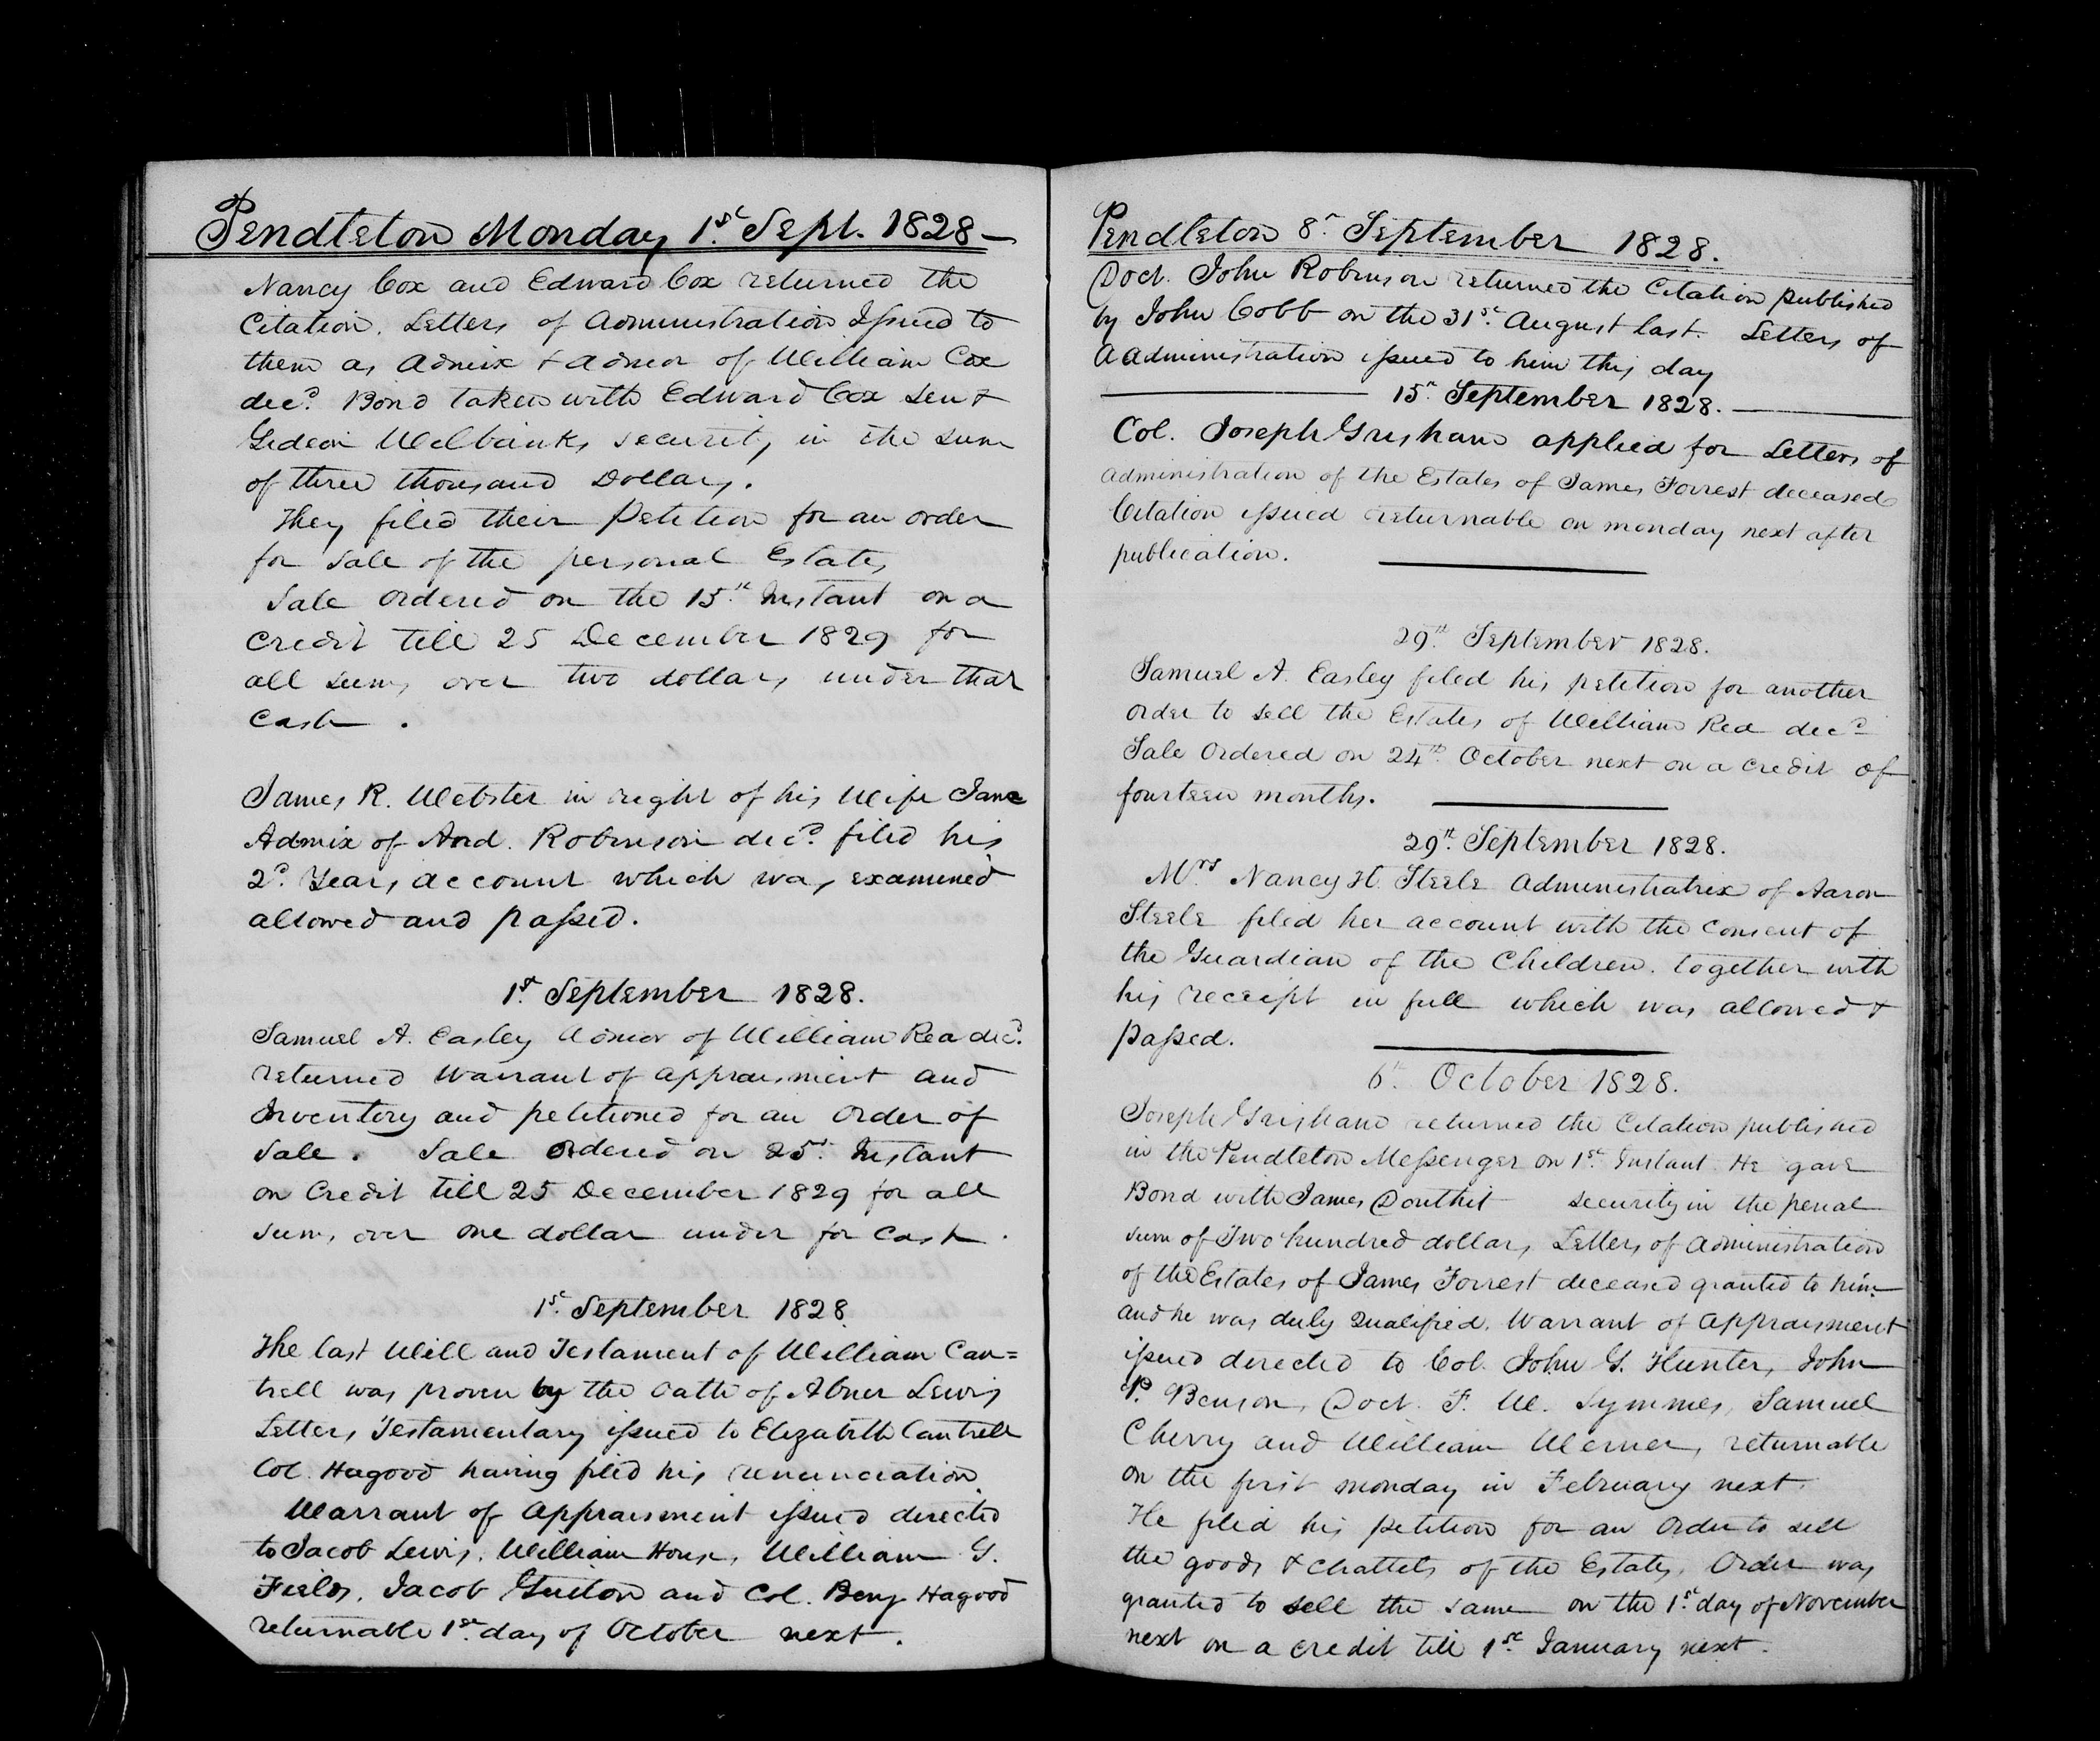 Pendleton Monday 1st Sept. 1828 —
Nancy Cox and Edward Cox returned the
Citation. Letters of Administration Issued to
them as Admix & Admor of William Cox
decd. Bond taken with Edward Cox Sen &
Gedeon Welbanks security in the sum
of three thousand Dollars.
They filed their Petition for an order
for Sale of the personal Estates
Sale ordered on the 15th Instant on a
Credit till 25 December 1829 for
all sums over two dollars under that
Cash .
James R. Webster in right of his Wife Jane
Admix of And. Robinson decd. filed his
2d. Years account which was examined
allowed and passed.
1st September 1828.
Samuel A. Easley Admor of William Rea decd.
returned Warrant of appraisment and
Inventory and petitioned for an Order of
Sale. Sale Ordered on 25th Instant
on Credit till 25 December 1829 for all
sums over one dollar under for Cash .
1st September 1828
The last Will and Testament of William Can=
trell was proven by the oath of Abner Lewis
Letters Testamentary issued to Elizabeth Cantrell
Col. Hagood having filed his renunciation
Warrant of Appraisment issued directed
to Jacob Lewis, William House, William G.
Fields, Jacob Guiton and Col. Benj. Hagood
returnable 1st day of October next.
Pendleton 8th September 1828.
Doct. John Robinson returned the Citation published
by John Cobb on the 31st August last. Letters of
Aadministration issued to him this day
15th September 1828.
Col. Joseph Grisham applied for Letters of
administration of the Estates of James Forrest deceased
Citation issued returnable on monday next after
publication.
29th September 1828.
Samuel A. Easley filed his petition for another
order to sell the Estates of William Rea decd
Sale Ordered on 24th October next on a credit of
fourteen months.
29th September 1828.
Mrs Nancy H. Steele Administratrix of Aaron
Steele filed her account with the consent of
the Guardian of the Children. together with
his receipt in full which was allowed &
passed.
6th October 1828.
Joseph Grisham returned the Citation published
in the Pendleton Messenger on 1st Instant. He gave
Bond with James Douthit security in the penal
sum of Two hundred dollars, Letters of Administration
of the Estates of James Forrest deceased granted to him
and he was duly Qualified. Warrant of Appraisment
issued directed to Col. John G. Hunter, John
P. Benson, Doct. F. W. Symmes, Samuel
Cherry and William Werner, returnable
on the first monday in February next.
He filed his petition for an Order to sell
the goods & chattels of the Estates. Order was
granted to sell the same on the 1st day of November
next on a credit till 1st January next.